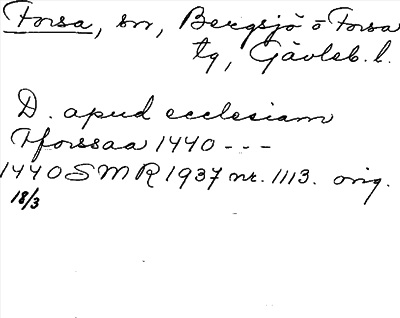 Forsa, sn, Bergsjö o Forsa
tg, Gävleb. l.
D. apud ecclesiam
Hforssaa 1440 - - -
1440 SMR 1937 nr. 1113. orig.
18/3